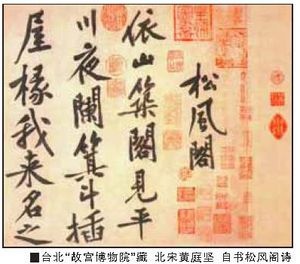 松風閣
依山築閣見平
川夜闌箕斗插
屋椽我来名之
■台北“故宫博物院”藏 北宋黄庭坚 自书松风阁诗